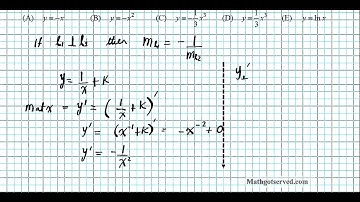 (A) y=-x (B) y=-x² (C) y=-1/3 x³ (D) y=1/3 x³ (E) y=ln x
If l₁ ⊥ l₂ then m_l₁ = - 1/m_l₂
y = 1/x + K
m at x = y' = (1/x + K)'
y' = (x⁻¹ + K)' = -x⁻² + 0
y' = - 1/x²
y⊥'
Mathgotserved.com